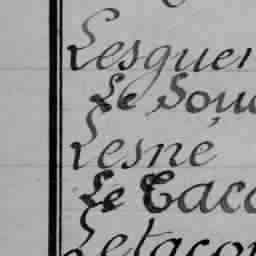 Lesguer
Le Sou
Lesné
Le Tacc
Letacon